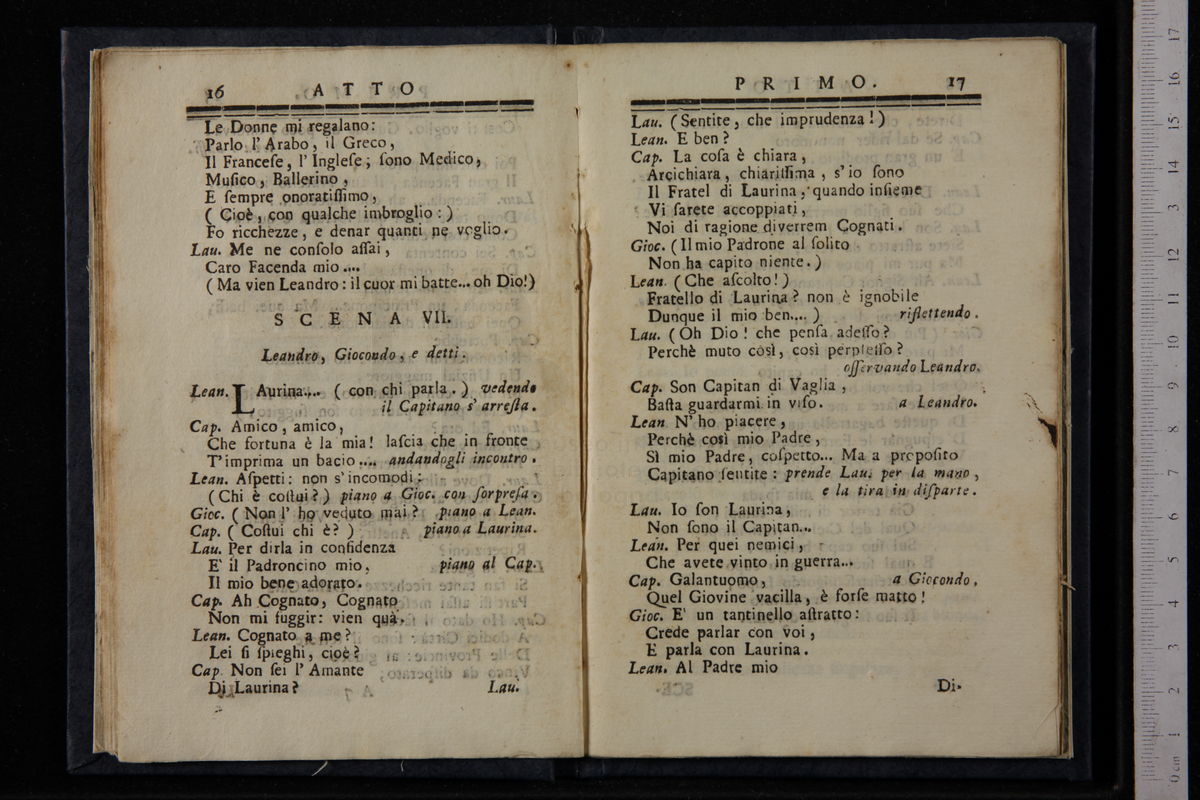 16 ATTO
Le Donne mi regalano:
Parlo l' Arabo, il Greco,
Il Franceſe, l' Ingleſe; ſono Medico,
Muſico, Ballerino,
E ſempre onoratiſſimo,
( Cioè, con qualche imbroglio: )
Fo ricchezze, e denar quanti ne voglio.
Lau. Me ne conſolo aſſai,
Caro Facenda mio....
( Ma vien Leandro: il cuor mi batte... oh Dio!)
SCENA VII.
Leandro, Giocondo, e detti.
Lean. LAurina.... ( con chi parla. ) vedendo
il Capitano s' arreſta.
Cap. Amico, amico,
Che fortuna è la mia! laſcia che in fronte
T' imprima un bacio.... andandogli incontro.
Lean. Aſpetti: non s' incomodi:
( Chi è coſtui? ) piano a Gioc. con ſorpreſa.
Gioc. ( Non l' ho veduto mai? piano a Lean.
Cap. ( Coſtui chi è? ) piano a Laurina.
Lau. Per dirla in confidenza
E' il Padroncino mio, piano al Cap.
Il mio bene adorato.
Cap. Ah Cognato, Cognato
Non mi fuggir: vien quà.
Lean. Cognato a me?
Lei ſi ſpieghi, cioè?
Cap. Non ſei l' Amante
Di Laurina? Lau.
PRIMO. 17
Lau. ( Sentite, che imprudenza! )
Lean. E ben?
Cap. La coſa è chiara,
Arcichiara, chiariſſima, s' io ſono
Il Fratel di Laurina, quando inſieme
Vi ſarete accoppiati,
Noi di ragione diverrem Cognati.
Gioc. ( Il mio Padrone al ſolito
Non ha capito niente. )
Lean. ( Che aſcolto! )
Fratello di Laurina? non è ignobile
Dunque il mio ben.... ) riflettendo.
Lau. ( Oh Dio! che penſa adeſſo?
Perchè muto così, così perpleſſo?
oſſervando Leandro.
Cap. Son Capitan di Vaglia,
Baſta guardarmi in viſo. a Leandro.
Lean N' ho piacere,
Perchè così mio Padre,
Sì mio Padre, coſpetto... Ma a propoſito
Capitano ſentite: prende Lau. per la mano,
e la tira in diſparte.
Lau. Io ſon Laurina,
Non ſono il Capitan...
Lean. Per quei nemici,
Che avete vinto in guerra...
Cap. Galantuomo, a Giocondo,
Quel Giovine vacilla, è forſe matto!
Gioc. E' un tantinello aſtratto:
Crede parlar con voi,
E parla con Laurina.
Lean. Al Padre mio
Di-